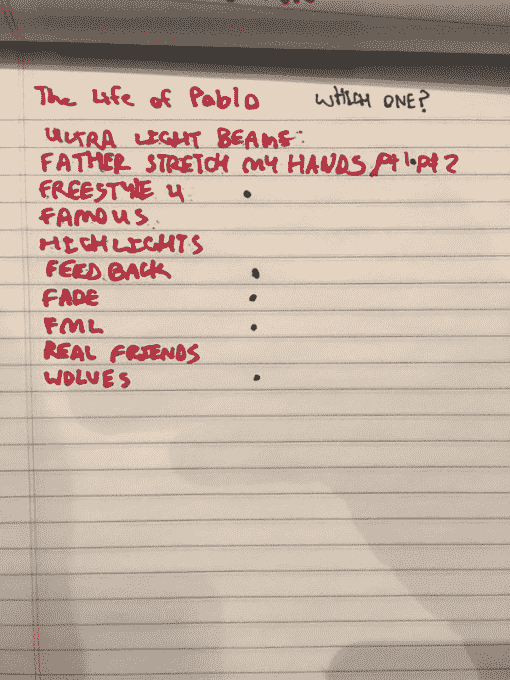 The Life of Pablo WHICH ONE?
ULTRA LIGHT BEAMS
FATHER STRETCH MY HANDS pt 1. pt 2
FREESTYLE 4
FAMOUS
HIGHLIGHTS
FEED BACK
FADE
FML
REAL FRIENDS
WOLVES